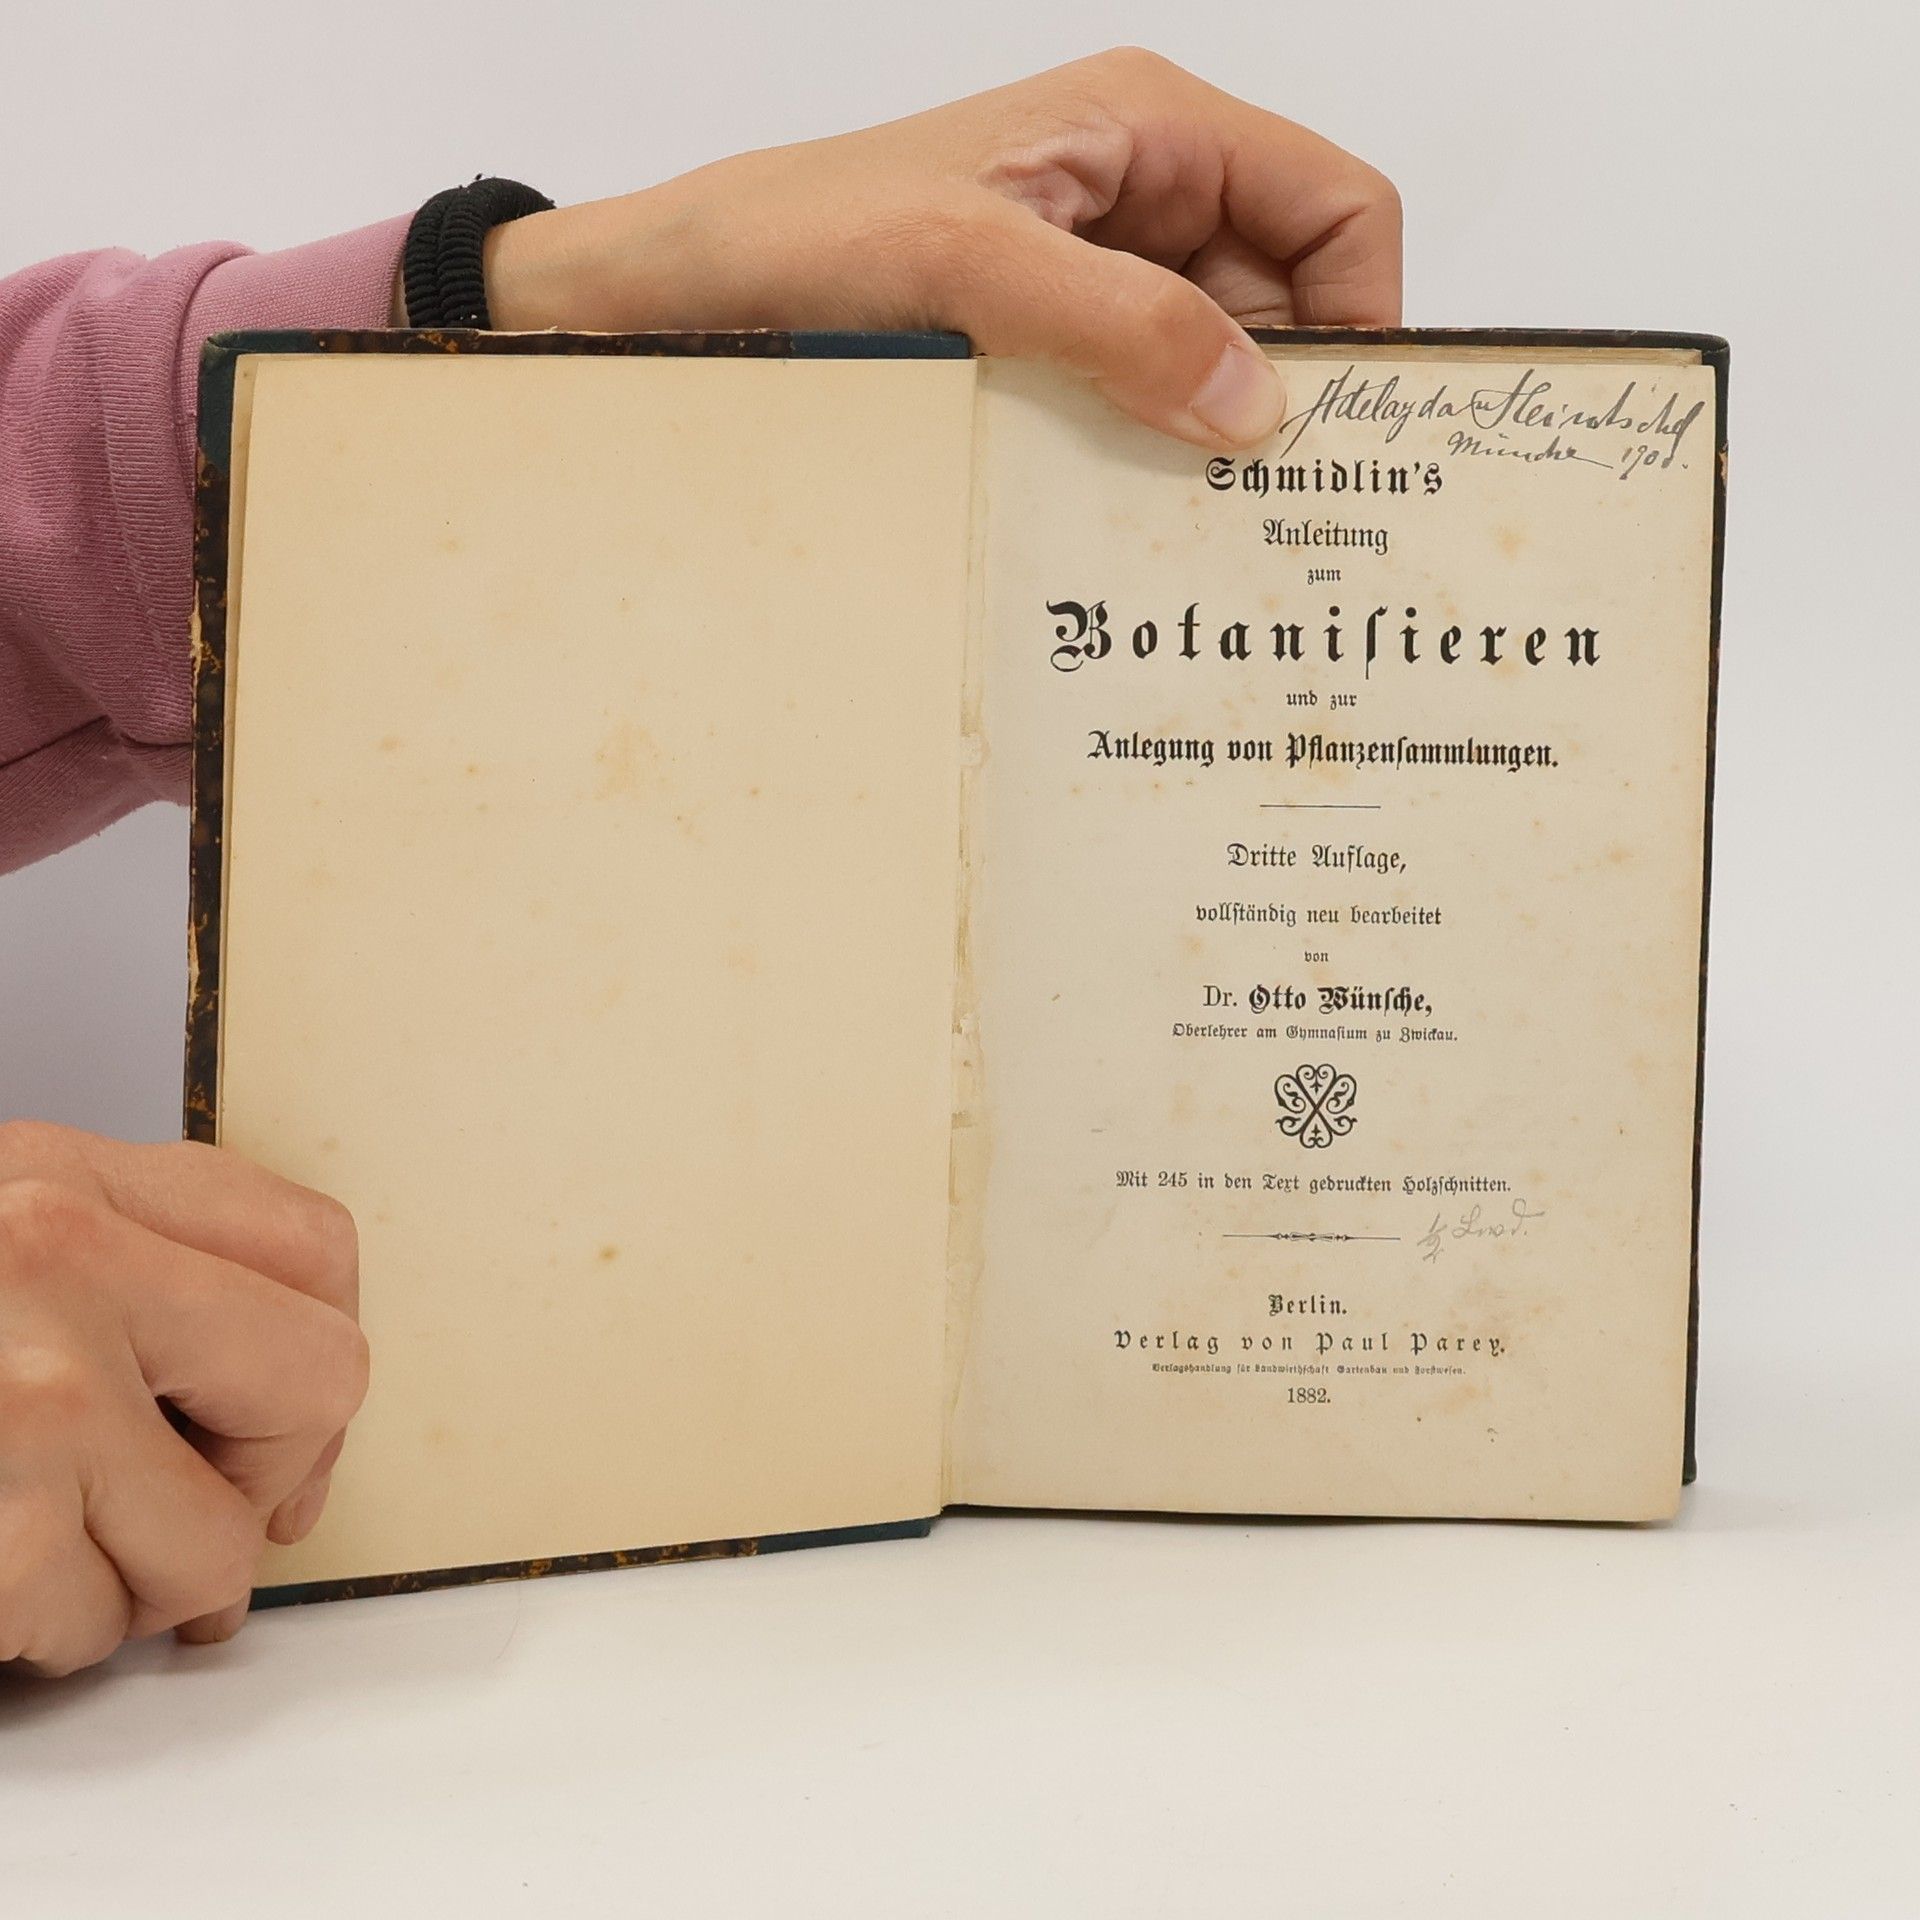 Adelayda v
München 190
Schmidlin's
Anleitung
zum
Botaniſieren
und zur
Anlegung von Pflanzenſammlungen.
Dritte Auflage,
vollſtändig neu bearbeitet
von
Dr. Otto Wünſche,
Oberlehrer am Gymnaſium zu Zwickau.
Mit 245 in den Text gedruckten Holzſchnitten.
1/2 Lwd.
Berlin.
Verlag von Paul Parey.
Verlagshandlung für Landwirthſchaft Gartenbau und Forſtweſen.
1882.